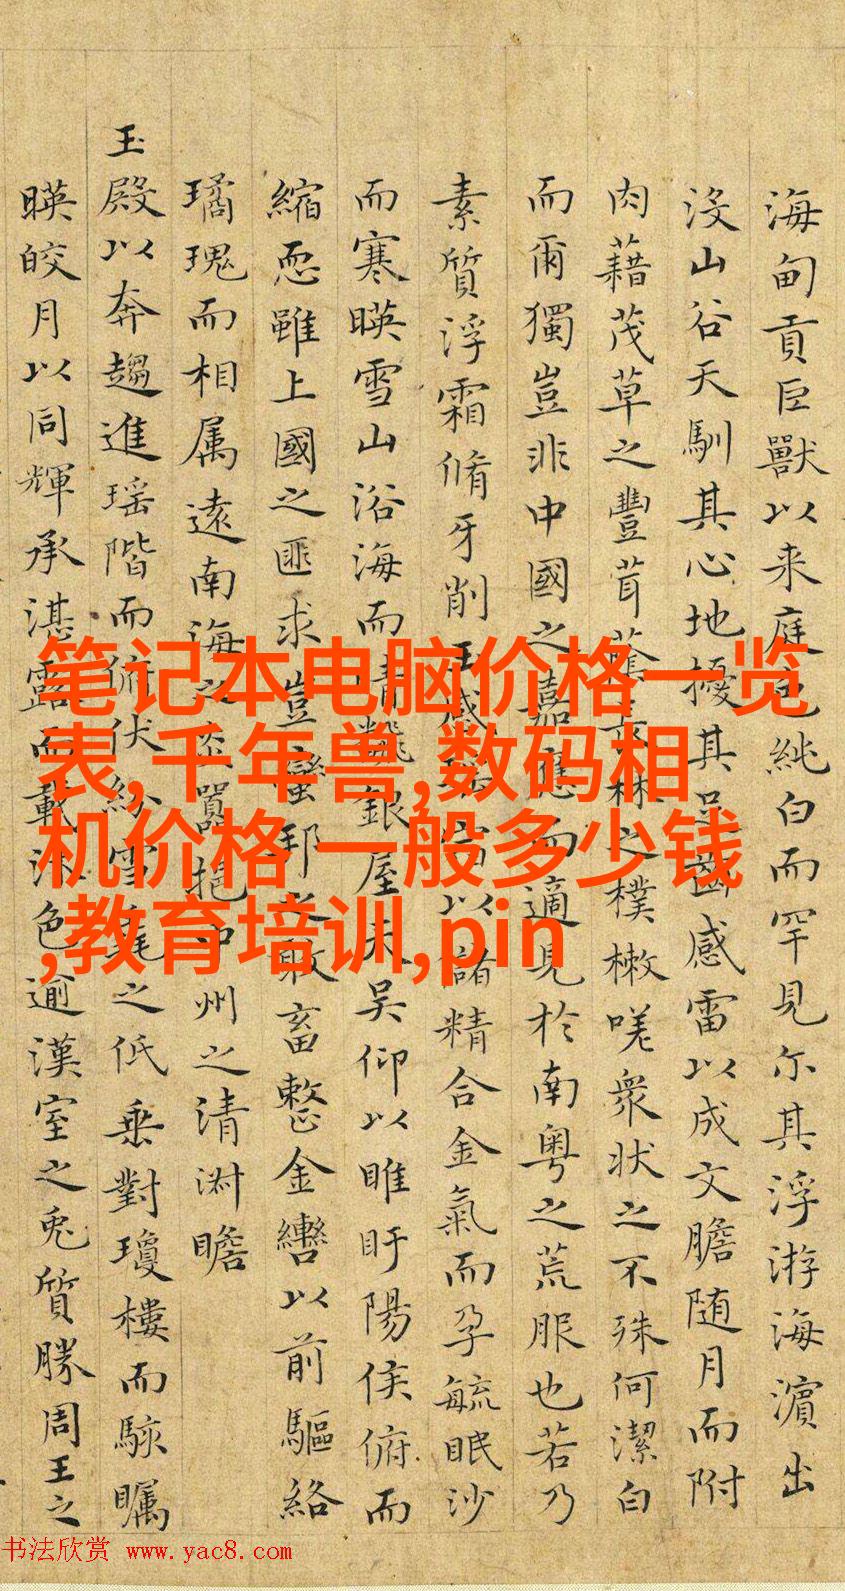 海甸貢巨獸以来庭色純白而罕見尓其浮游海濵出
沒山谷天馴其心地擾其足齒感雷以成文膽随月而附
肉藉茂草之豐茸蔭長林之樸樕嗟衆状之不殊何潔白
而爾獨豈非中國之嘉應而適見於南粤之荒服也若乃
素質浮霜脩牙削玉感以儲精合金氣而孕毓眠沙
而寒暎雪山浴海而清飜銀屋天吳仰以睢盱陽侯俯而
縮恧雖上國之匪求豈蠻邦之敢畜整金轡以前驅絡
璚瑰而相属遠南海之嚣挹中州之清淑瞻
玉殿以奔趨進瑶階而俯伏紛雪毳之低乗對瓊樓而駭矚
暎皎月以同輝承湛露而載沐色逾漢室之兎質勝周王之
笔记本电脑价格一览
表,千年兽,数码相
机价格一般多少钱
,教育培训,pin
书法欣赏 www.yac8.com